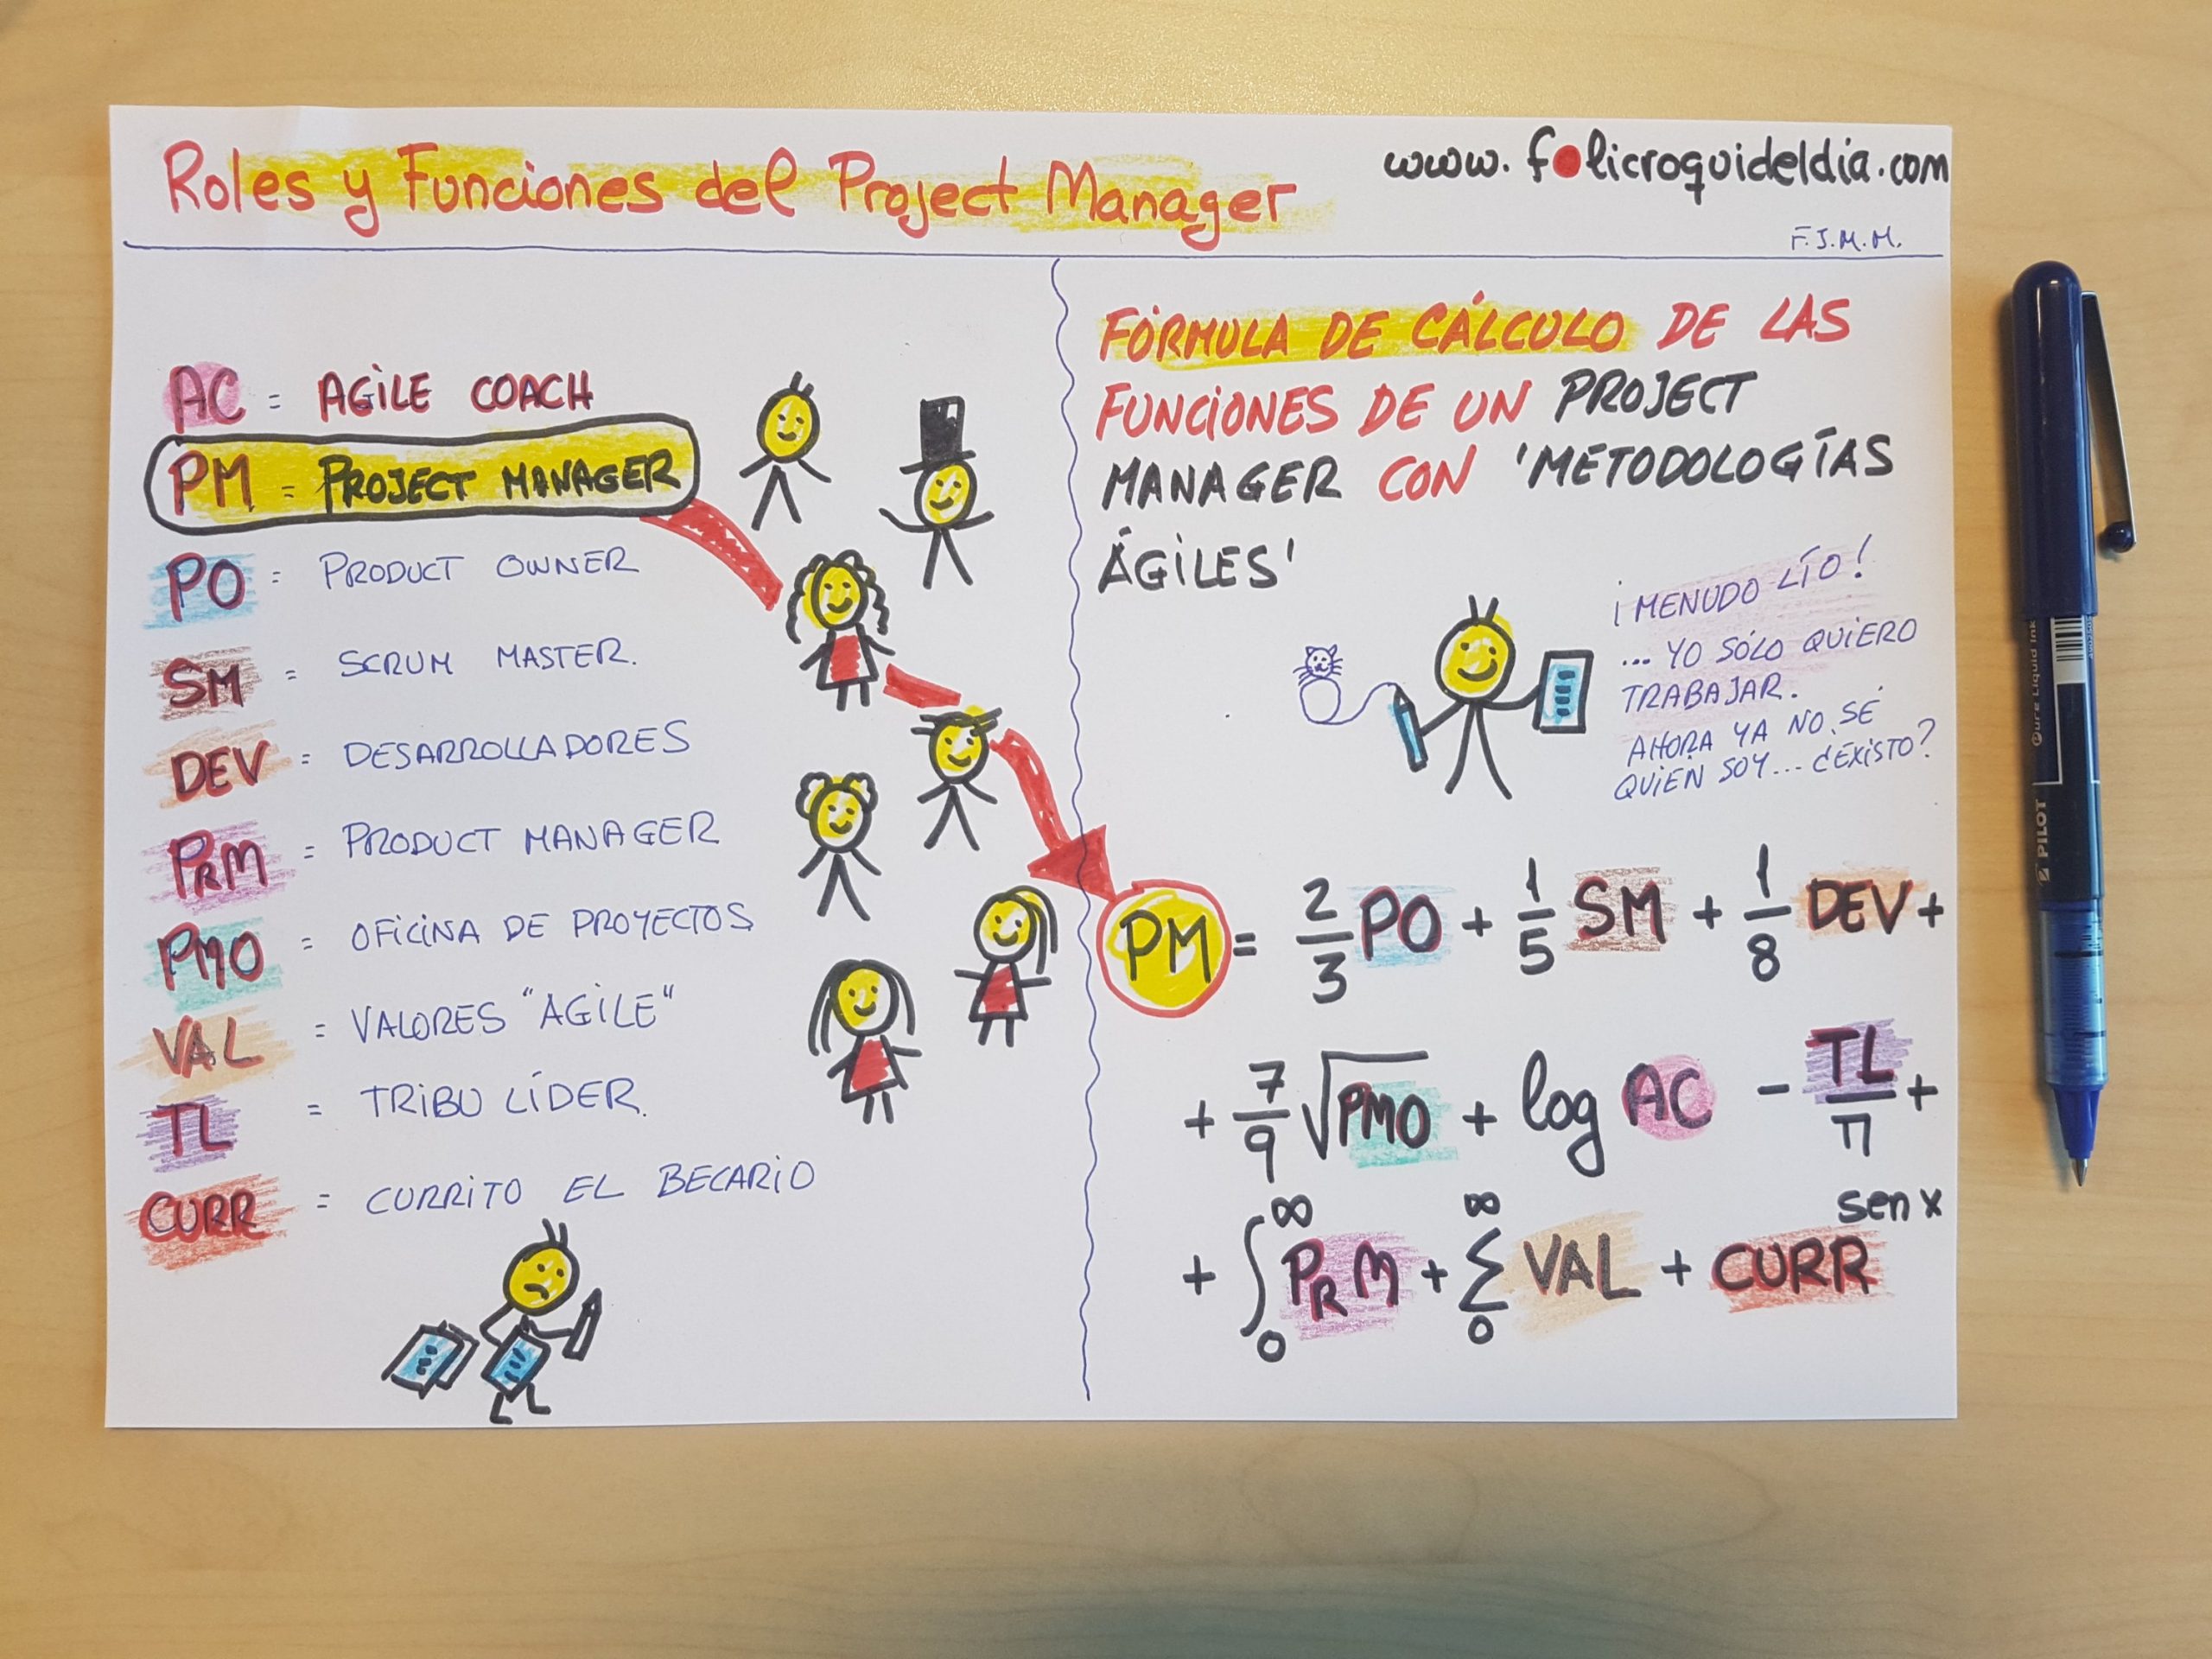 Roles y Funciones del Project Manager
www.folicroquideldia.com
F.J.M.M.
AC = AGILE COACH
PM = PROJECT MANAGER
PO = PRODUCT OWNER
SM = SCRUM MASTER.
DEV = DESARROLLADORES
PRM = PRODUCT MANAGER
PMO = OFICINA DE PROYECTOS
VAL = VALORES "AGILE"
TL = TRIBU LÍDER.
CURR = CURRITO EL BECARIO
FÓRMULA DE CÁLCULO DE LAS
FUNCIONES DE UN PROJECT
MANAGER CON 'METODOLOGÍAS
ÁGILES'
¡MENUDO LÍO!
... YO SÓLO QUIERO
TRABAJAR.
AHORA YA NO SÉ
QUIEN SOY... ¿EXISTO?
PM = 2/3 PO + 1/5 SM + 1/8 DEV +
+ 7/9 √PMO + log AC - TL/π +
+ ∫₀^∞ PRM + Σ₀^∞ VAL + CURR^sen x
PILOT
Pure Liquid Ink